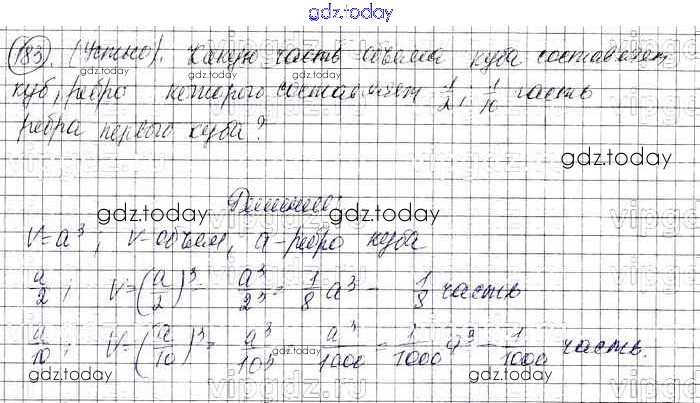 gdz.today
183. (Устно). Какую часть объема куба составляет
куб, ребро которого составляет 1/2; 1/10 часть
ребра первого куба?
gdz.today
gdz.today
gdz.today
Решение:
V=a³; V-объем, a-ребро куба
a/2; V=(a/2)³= a³/2³= 1/8 a³ - 1/8 часть
a/10; V=(a/10)³= a³/10³= a³/1000= 1/1000 a³- 1/1000 часть.
gdz.today
gdz.today
gdz.today